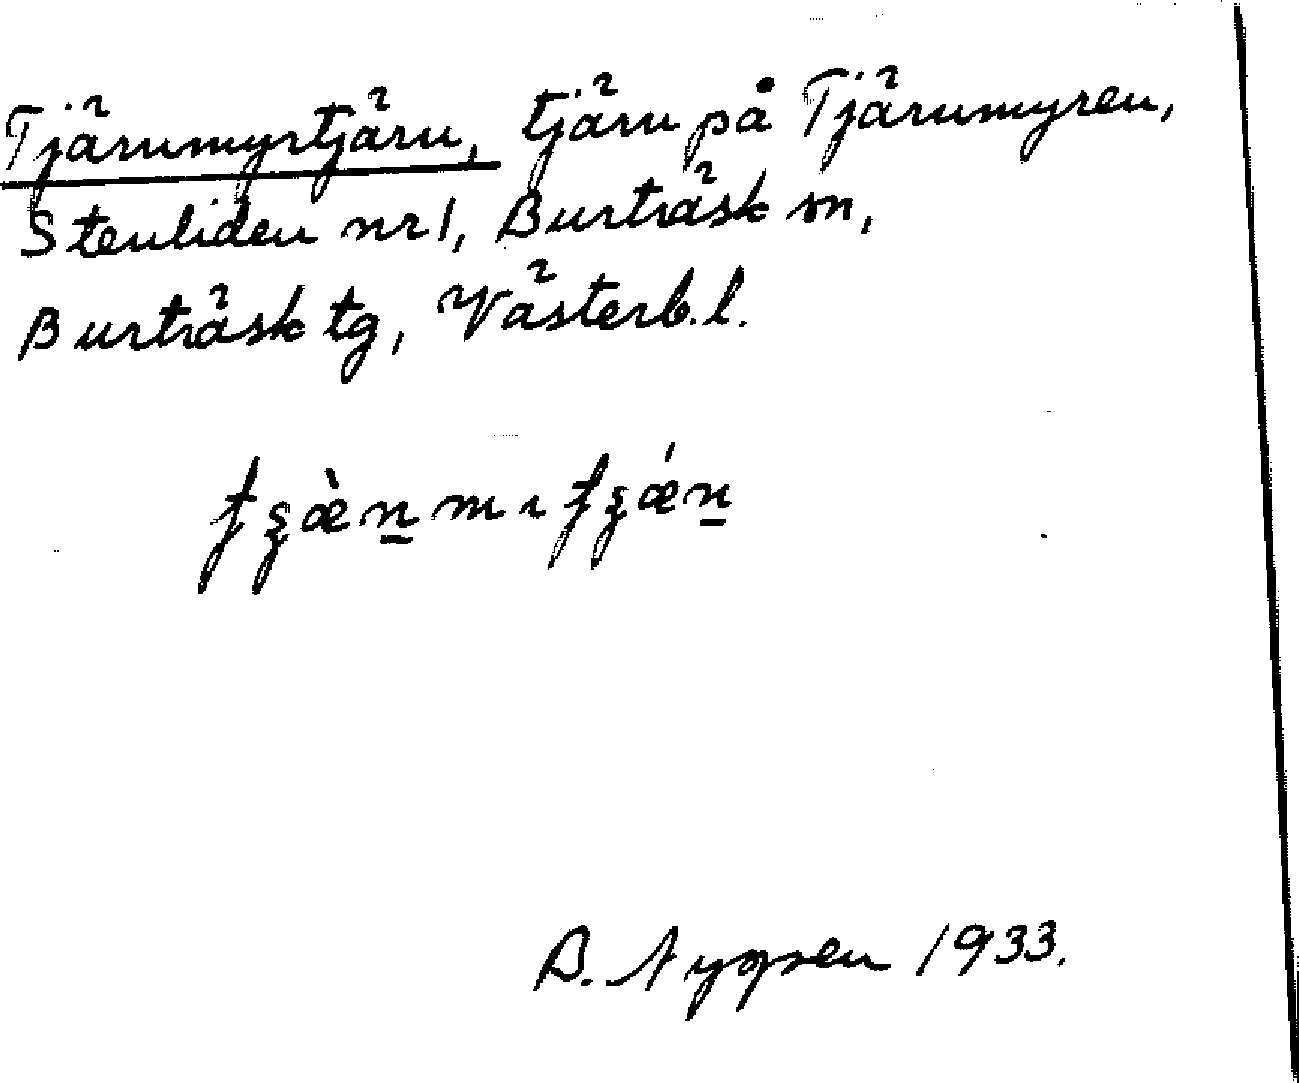 Tjärnmyrtjärn, tjärn på Tjärnmyren,
Stenliden nr 1, Burträsk sn,
Burträsk tg, Västerb. l.
B. Nygren 1933.